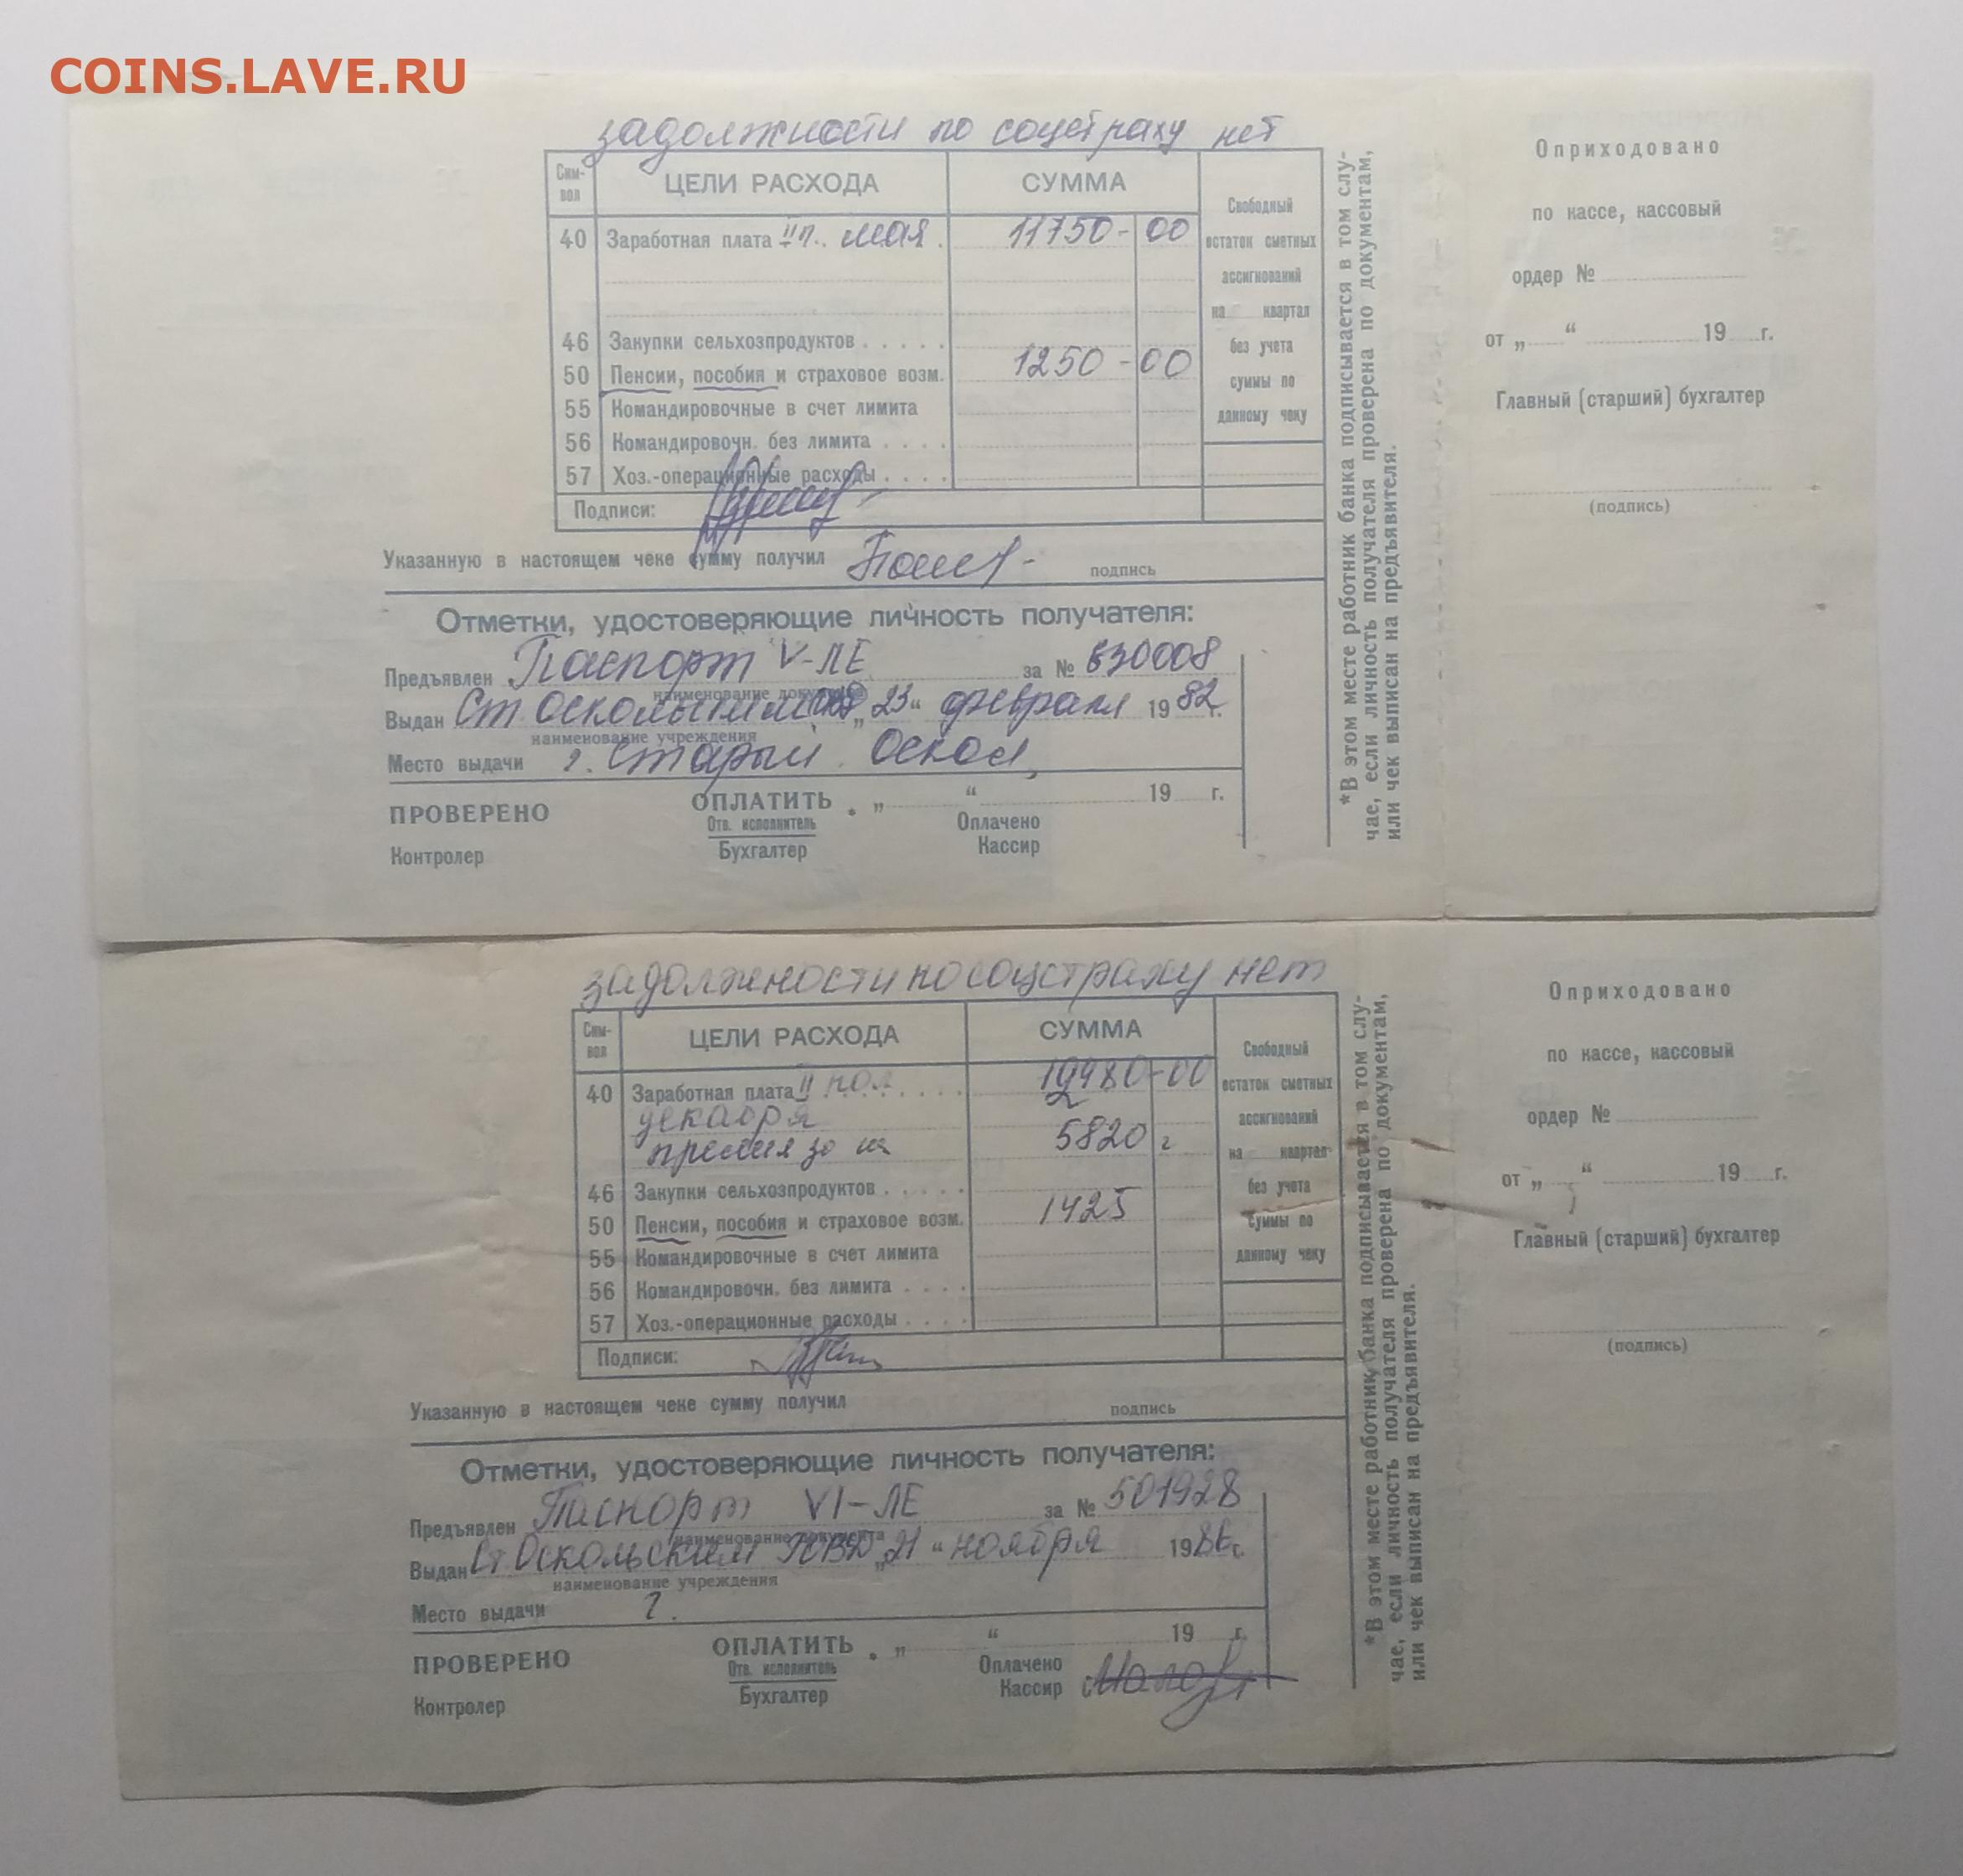 COINS.LAVE.RU
задолжности по соцстраху нет
Сим-вол
ЦЕЛИ РАСХОДА
СУММА
40 Заработная плата II п. мая 11750-00
46 Закупки сельхозпродуктов
50 Пенсии, пособия и страховое возм. 1250-00
55 Командировочные в счет лимита
56 Командировочн. без лимита
57 Хоз.-операционные расходы
Подписи:
Свободный
остаток сметных
ассигнований
на квартал
без учета
суммы по
данному чеку
Указанную в настоящем чеке сумму получил
подпись
Отметки, удостоверяющие личность получателя:
Предъявлен Паспорт V-ЛЕ за № 630008
наименование документа
Выдан Ст. Оскольским „23“ февраля 1982 г.
наименование учреждения
Место выдачи г. Старый Оскол
ПРОВЕРЕНО ОПЛАТИТЬ . „ “ 19 г.
Отв. исполнитель Оплачено
Контролер Бухгалтер Кассир
*В этом месте работник банка подписывается в том слу-
чае, если личность получателя проверена по документам,
или чек выписан на предъявителя.
Оприходовано
по кассе, кассовый
ордер №
от „ “ 19 г.
Главный (старший) бухгалтер
(подпись)
задолжности по соцстраху нет
Сим-вол
ЦЕЛИ РАСХОДА
СУММА
40 Заработная плата II пол. -00
декабря
премия 5820
46 Закупки сельхозпродуктов
50 Пенсии, пособия и страховое возм. 1425
55 Командировочные в счет лимита
56 Командировочн. без лимита
57 Хоз.-операционные расходы
Подписи:
Свободный
остаток сметных
ассигнований
на квартал
без учета
суммы по
данному чеку
Указанную в настоящем чеке сумму получил
подпись
Отметки, удостоверяющие личность получателя:
Предъявлен Паспорт VI-ЛЕ за № 501928
наименование документа
Выдан Ст Оскольским „21“ ноября 1986 г.
наименование учреждения
Место выдачи г.
ПРОВЕРЕНО ОПЛАТИТЬ . „ “ 19 г.
Отв. исполнитель Оплачено
Контролер Бухгалтер Кассир
*В этом месте работник банка подписывается в том слу-
чае, если личность получателя проверена по документам,
или чек выписан на предъявителя.
Оприходовано
по кассе, кассовый
ордер №
от „ “ 19 г.
Главный (старший) бухгалтер
(подпись)